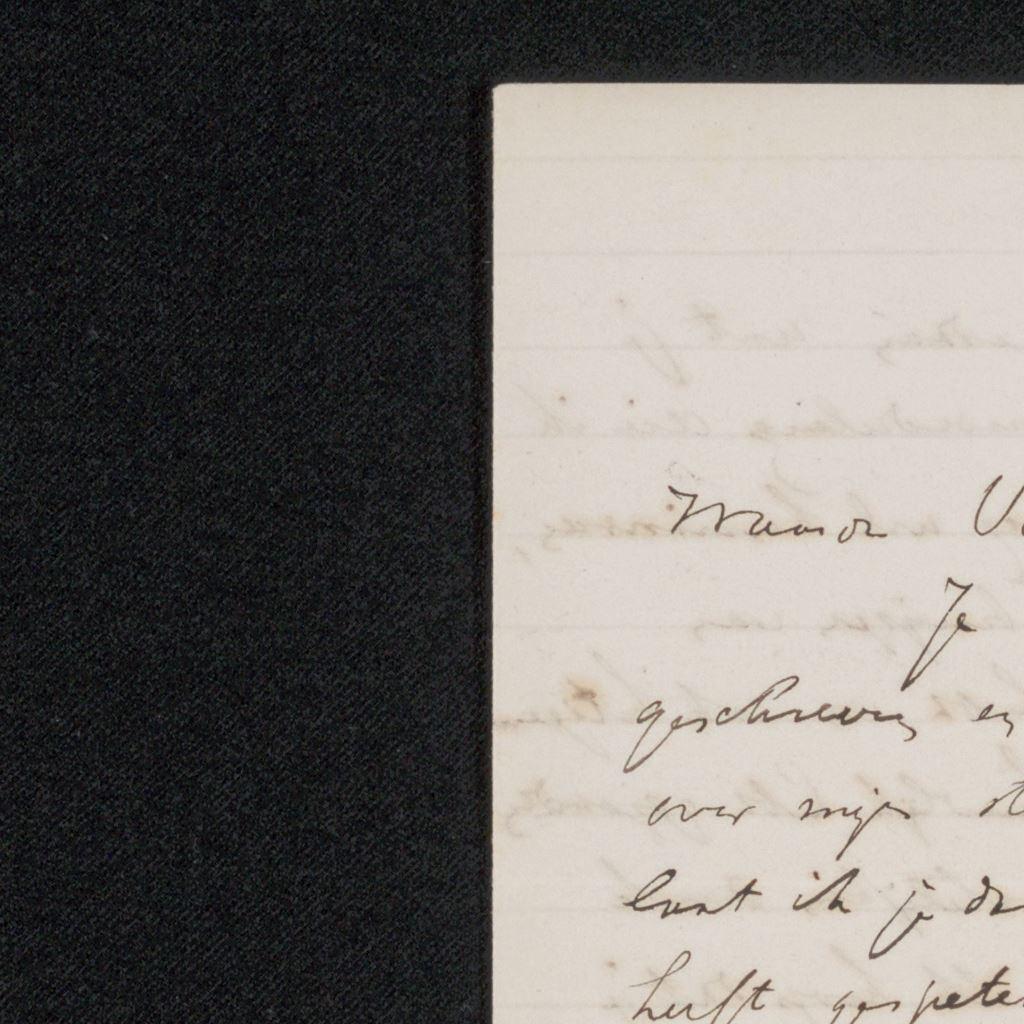 Waarde V
Je
geschreven en
over mijn st
laat ik je da
heeft gespete